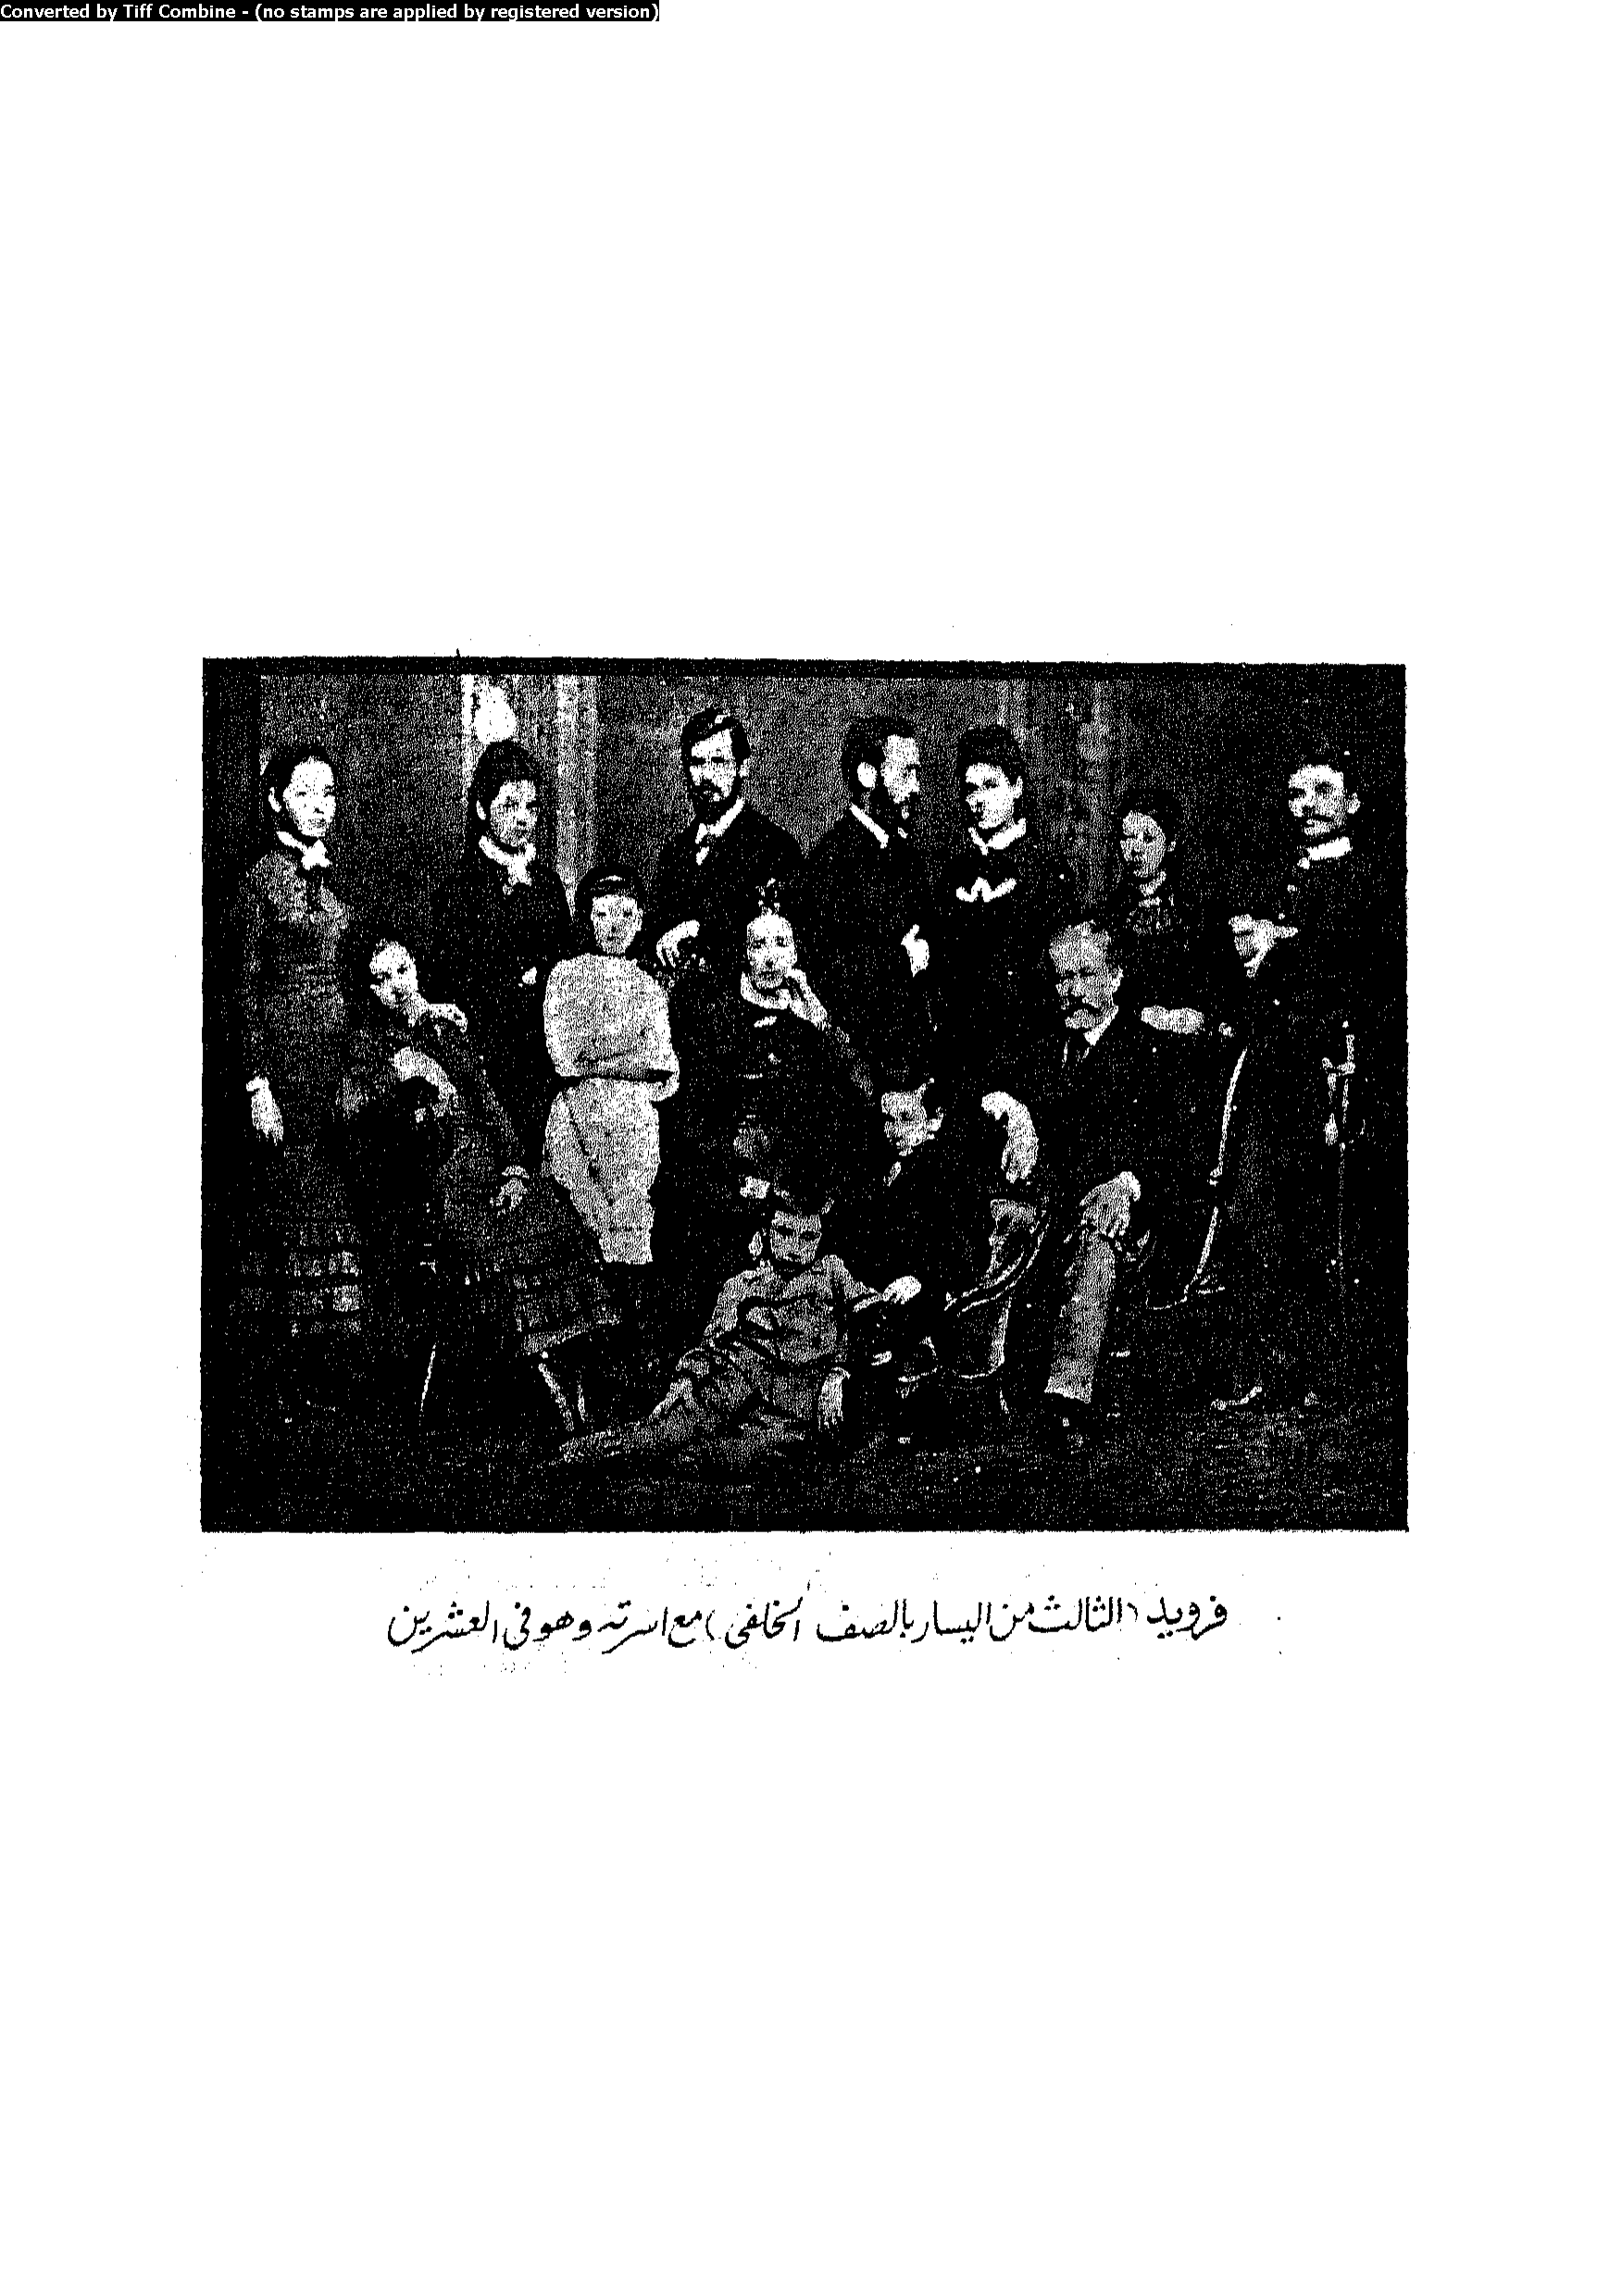 Converted by Tiff Combine - (no stamps are applied by registered version)
فرويد (الثالث من اليسار بالصف الخلفى) مع اسرته وهو فى العشرين